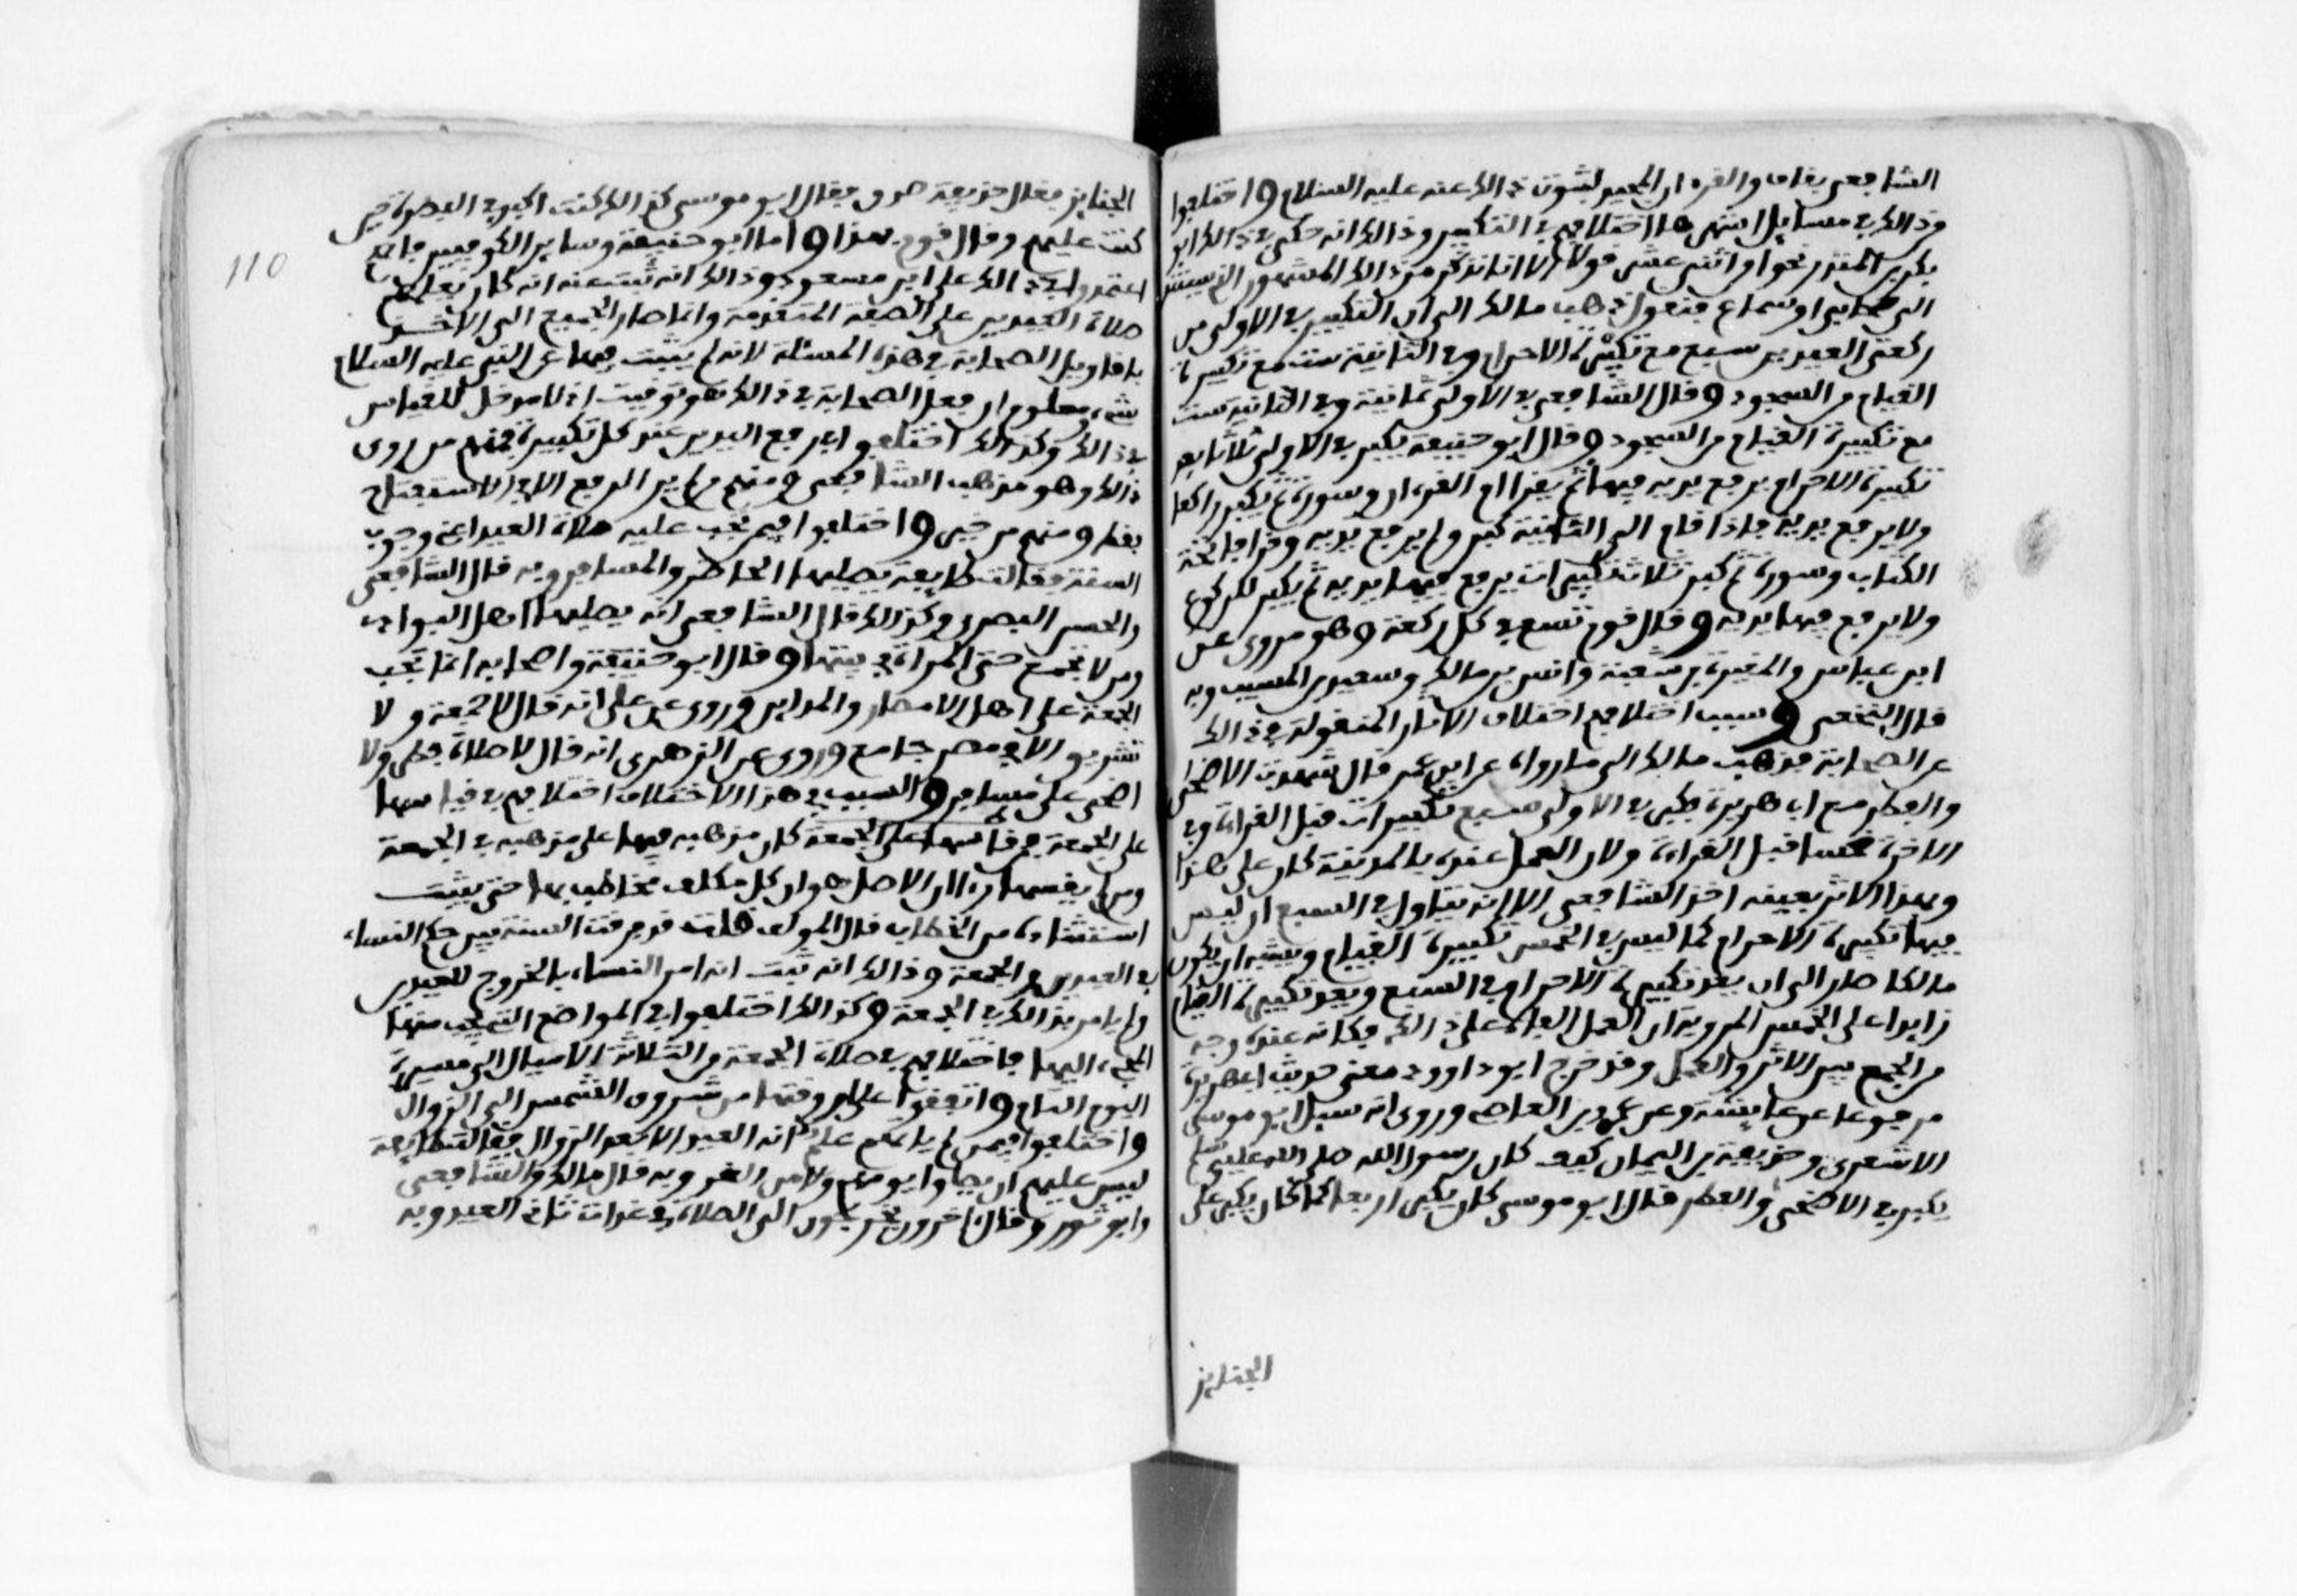 الشافعي بقاف والقرءان المجيد لثبوت ذالك عنه عليه السلام واختلفوا
من ذالك في مسايل اشهرها اختلافهم في التكبير وذالك انه حكى في ذالك ابو
بكر بن المنذر نحوا من اثني عشر قولا الا انا نذكر من ذالك المشهور الذي يستند
الى صحابي او سماع فنقول ذهب مالك الى ان التكبير في الاولى من
ركعتي العيدين سبع مع تكبيرة الاحرام وفي الثانية ست مع تكبيرة
القيام من السجود وقال الشافعي في الاولى ثمانية وفي الثانية ست
مع تكبيرة القيام من السجود وقال ابو حنيفة يكبر في الاولى ثلاثا بعد
تكبيرة الاحرام يرفع يديه فيها ثم يقرا ام القرءان وسورة ثم يكبر راكعا
ولا يرفع يديه فاذا قام الى الثانية كبر ولم يرفع يديه وقرا فاتحة
الكتاب وسورة ثم كبر ثلاث تكبيرات يرفع فيها يديه ثم يكبر للركوع
ولا يرفع فيها يديه وقال قوم تسع في كل ركعة وهو مروي عن
ابن عباس والمغيرة بن شعبة وانس بن مالك وسعيد بن المسيب وبه
قال النخعي وسبب اختلافهم اختلاف الاثار المنقولة في ذالك
عن الصحابة فذهب مالك الى ما رواه عن ابن عمر قال شهدت الاضحى
والفطر مع ابي هريرة فكبر في الاولى سبع تكبيرات قبل القراءة وفي
الاخرة خمسا قبل القراءة ولان العمل عنده بالمدينة كان على هذا
وبهذا الاثر بعينه اخذ الشافعي الا انه تاول في السبع ان ليس
فيها تكبيرة الاحرام كما ليس في الخمس تكبيرة القيام ويشبه ان يكون
مالكا صار الى ان يعد تكبيرة الاحرام في السبع ويعد تكبيرة القيام
زايدا على الخمس المروية ان العمل الفاه على ذالك فكانه عنده وجه
من الجمع بين الاثر والعمل وقد خرج ابو داوود معنى حديث ابي هريرة
مرفوعا عن عايشة وعن عمرو بن العاص وروي انه سيل ابو موسى
الاشعري وحذيفة بن اليمان كيف كان رسول الله صلى الله عليه وسلم
يكبر في الاضحى والفطر فقال ابو موسى كان يكبر اربعا كما كان يكبر على
الجنايز
110
الجنايز فقال حذيفة صدق فقال ابو موسى كذالك كنت اكبر في البصرة حين
كنت عليهم وقال قوم بهذا واما ابو حنيفة وساير الكوفيين فانهم
اعتمدوا في ذالك على ابن مسعود وذالك انه ثبت عنه انه كان يعلمهم
صلاة العيدين على الصفة المتقدمة وانما صار الجميع الى الاخذ
باقاويل الصحابة في هذه المسئلة لانه لم يثبت فيها عن النبي عليه السلام
شيء ومعلوم ان فعل الصحابة في ذالك هو توقيف اذ لا مدخل للقياس
في ذالك وكذالك اختلفوا في رفع اليدين عند كل تكبيرة فمنهم من راى
ذالك وهو مذهب الشافعي ومنهم من لم ير الرفع الا في الاستفتاح
فقط ومنهم من خير واختلفوا فيمن تجب عليه صلاة العيد اعني وجوب
السنة فقالت طايفة يصليها الحاضر والمسافر وبه قال الشافعي
والحسن البصري وكذالك قال الشافعي انه يصليها اهل البوادي
ومن لا يجمع حتى المراة في بيتها وقال ابو حنيفة واصحابه انما تجب
الجمعة على اهل الامصار والمداين وروي عن علي انه قال لا جمعة ولا
تشريق الا في مصر جامع وروي عن الزهري انه قال لا صلاة فطر ولا
اضحى على مسافر والسبب في هذا الاختلاف اختلافهم في قياسها
على الجمعة فمن قاسها على الجمعة كان مذهبه فيها على مذهبه في الجمعة
ومن لم يقسها راى ان الاصل هو ان كل مكلف مخاطب بها حتى يثبت
استثناءه من الخطاب قال المولف قلت قد فرقت السنة بين حكم النساء
في العيدين والجمعة وذالك انه ثبت انه امر النساء بالخروج للعيدين
ولم يامر بذالك في الجمعة وكذالك اختلفوا في المواضع التي يجب منها
المجيء اليها كاختلافهم في صلاة الجمعة من الثلاثة الاميال الى مسيرة
اليوم التام واتفقوا على ان وقتها من شروق الشمس الى الزوال
واختلفوا فيمن لم ياتهم علم انه العيد الا بعد الزوال فقالت طايفة
ليس عليهم ان يصلوا يومهم ولا من الغد وبه قال مالك والشافعي
وابو ثور وقال اخرون يخرجون الى الصلاة في غداة ثاني العيد وبه